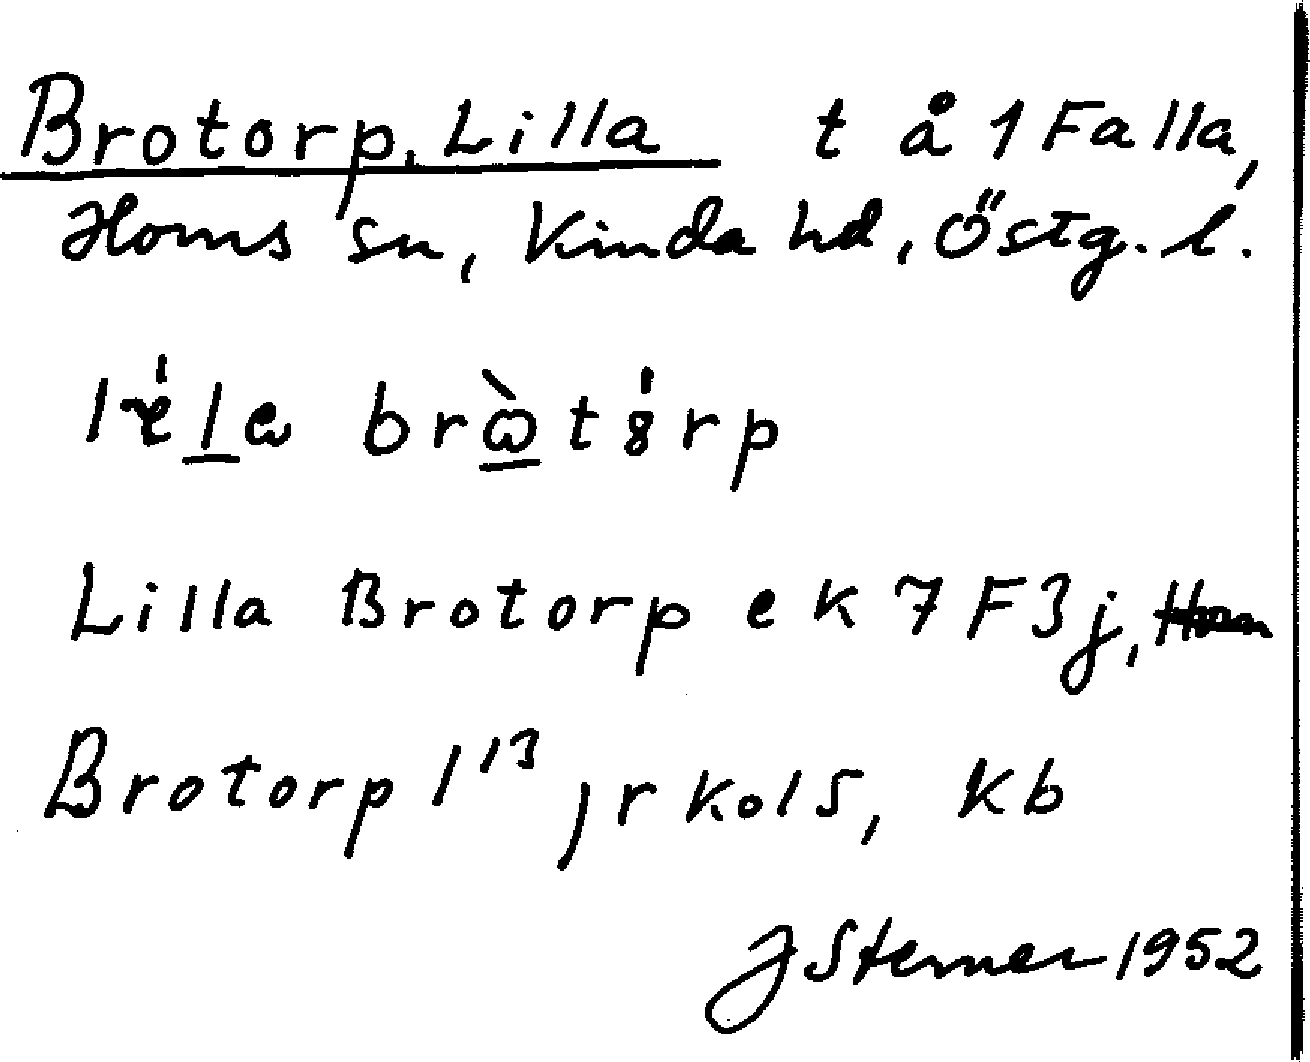 Brotorp, Lilla t å 1 Falla,
Horns sn, Kinda hd, Östg. l.
Lilla Brotorp ek 7 F 3 j,
Brotorp 1 1/3 jrkols, kb
J Sterner 1952